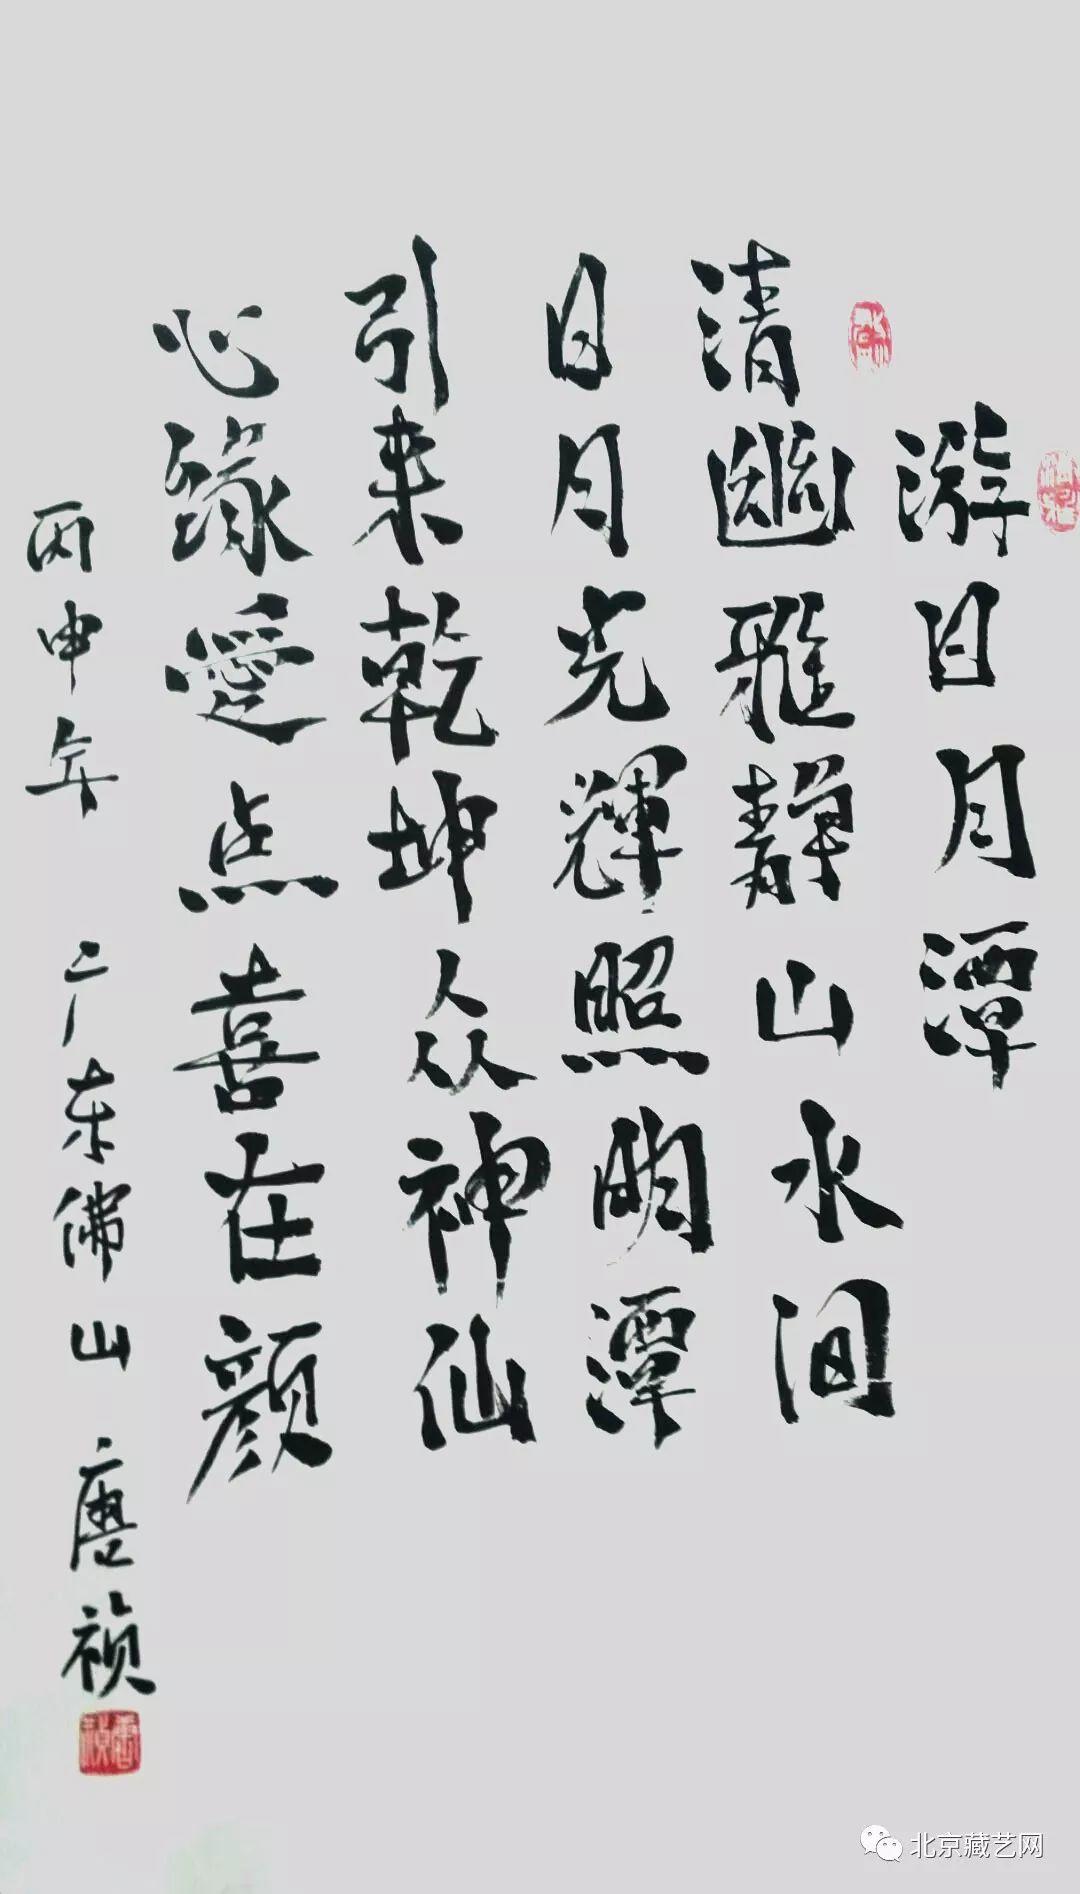 游日月潭
清幽雅靜山水间
日月光輝照明潭
引来乾坤众神仙
心緣愛点喜在颜
丙申年 广东佛山 唐祯
北京藏艺网